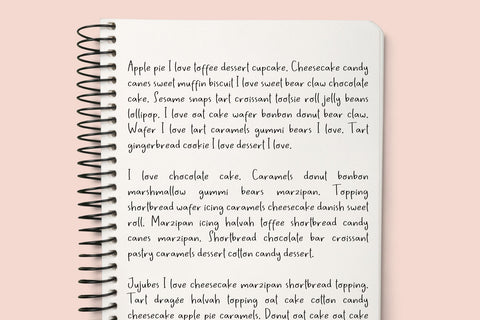 Apple pie I love toffee dessert cupcake. Cheesecake candy
canes sweet muffin biscuit I love sweet bear claw chocolate
cake. Sesame snaps tart croissant tootsie roll jelly beans
lollipop. I love oat cake wafer bonbon donut bear claw.
Wafer I love tart caramels gummi bears I love. Tart
gingerbread cookie I love dessert I love.
I love chocolate cake. Caramels donut bonbon
marshmallow gummi bears marzipan. Topping
shortbread wafer icing caramels cheesecake danish sweet
roll. Marzipan icing halvah toffee shortbread candy
canes marzipan. Shortbread chocolate bar croissant
pastry caramels dessert cotton candy dessert.
Jujubes I love cheesecake marzipan shortbread topping.
Tart dragée halvah topping oat cake cotton candy
cheesecake apple pie caramels. Donut oat cake oat cake